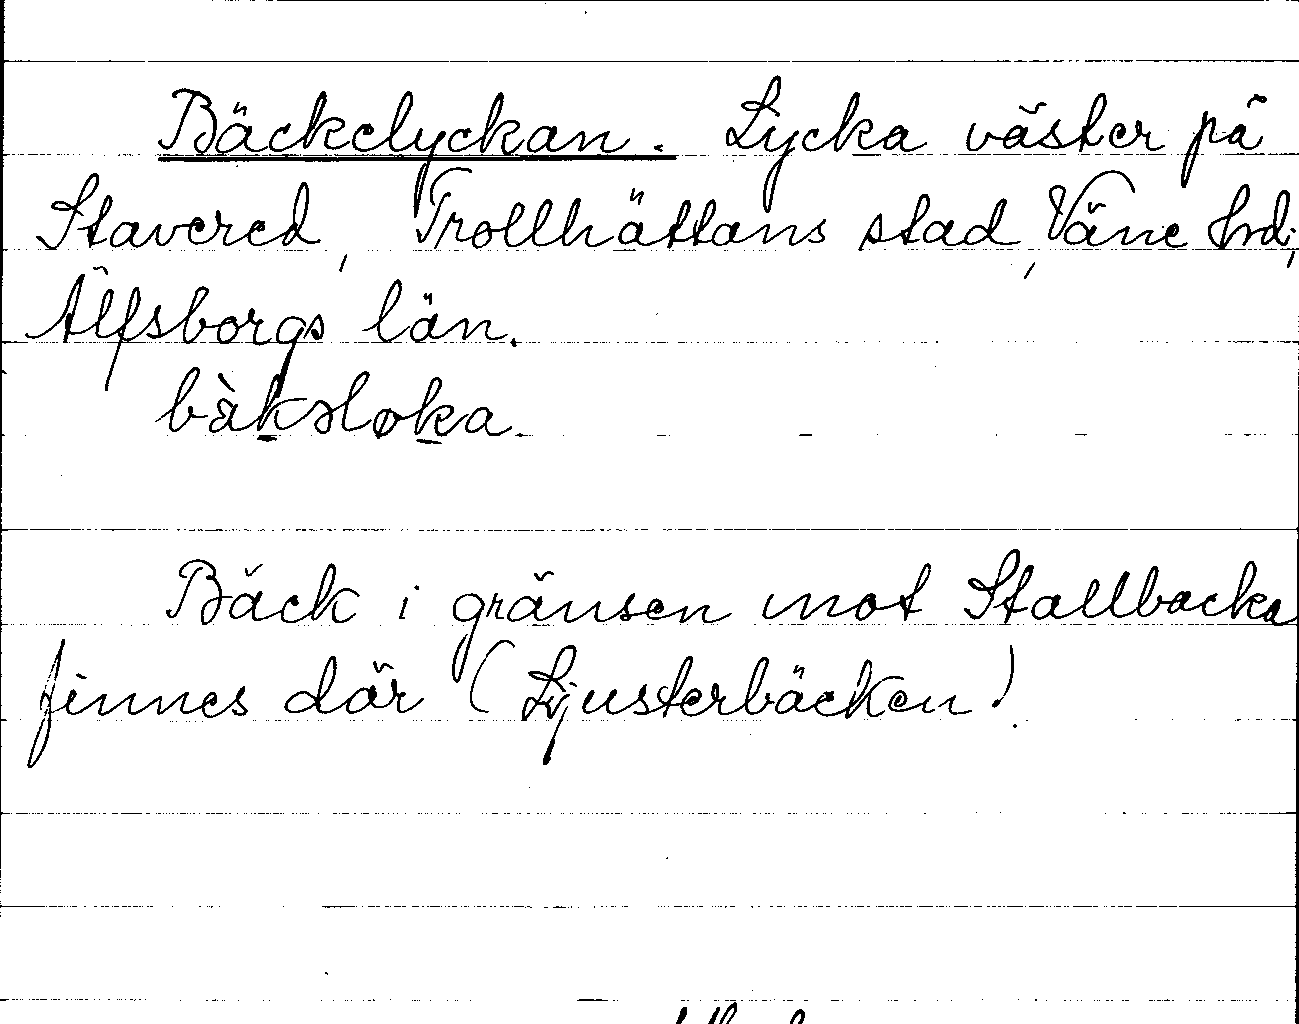 Bäckelyckan. Lycka väster på
Stavered, Trollhättans stad, Väne hrd;
Älfsborgs län.
bàksløka.
Bäck i gränsen mot Stallbacka
finnes där (Ljusterbäcken)